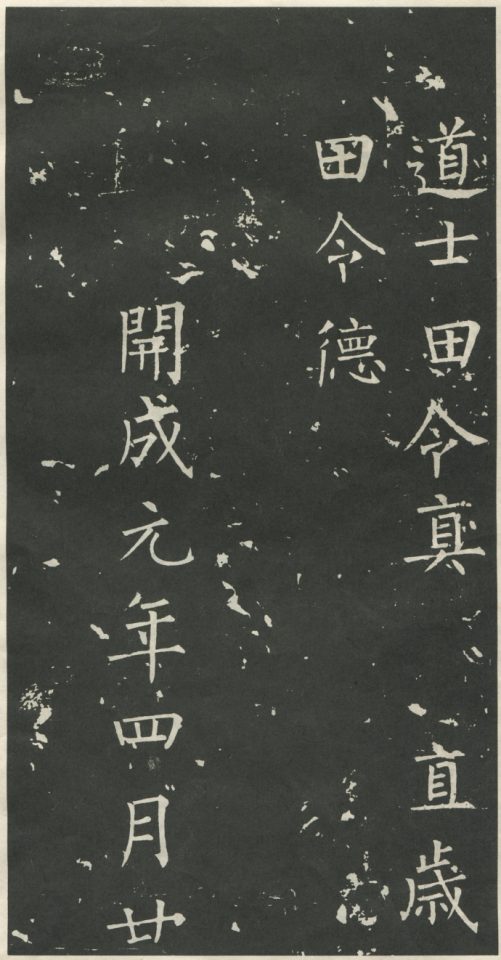 道士田令真 直歳
田令德
開成元年四月廿